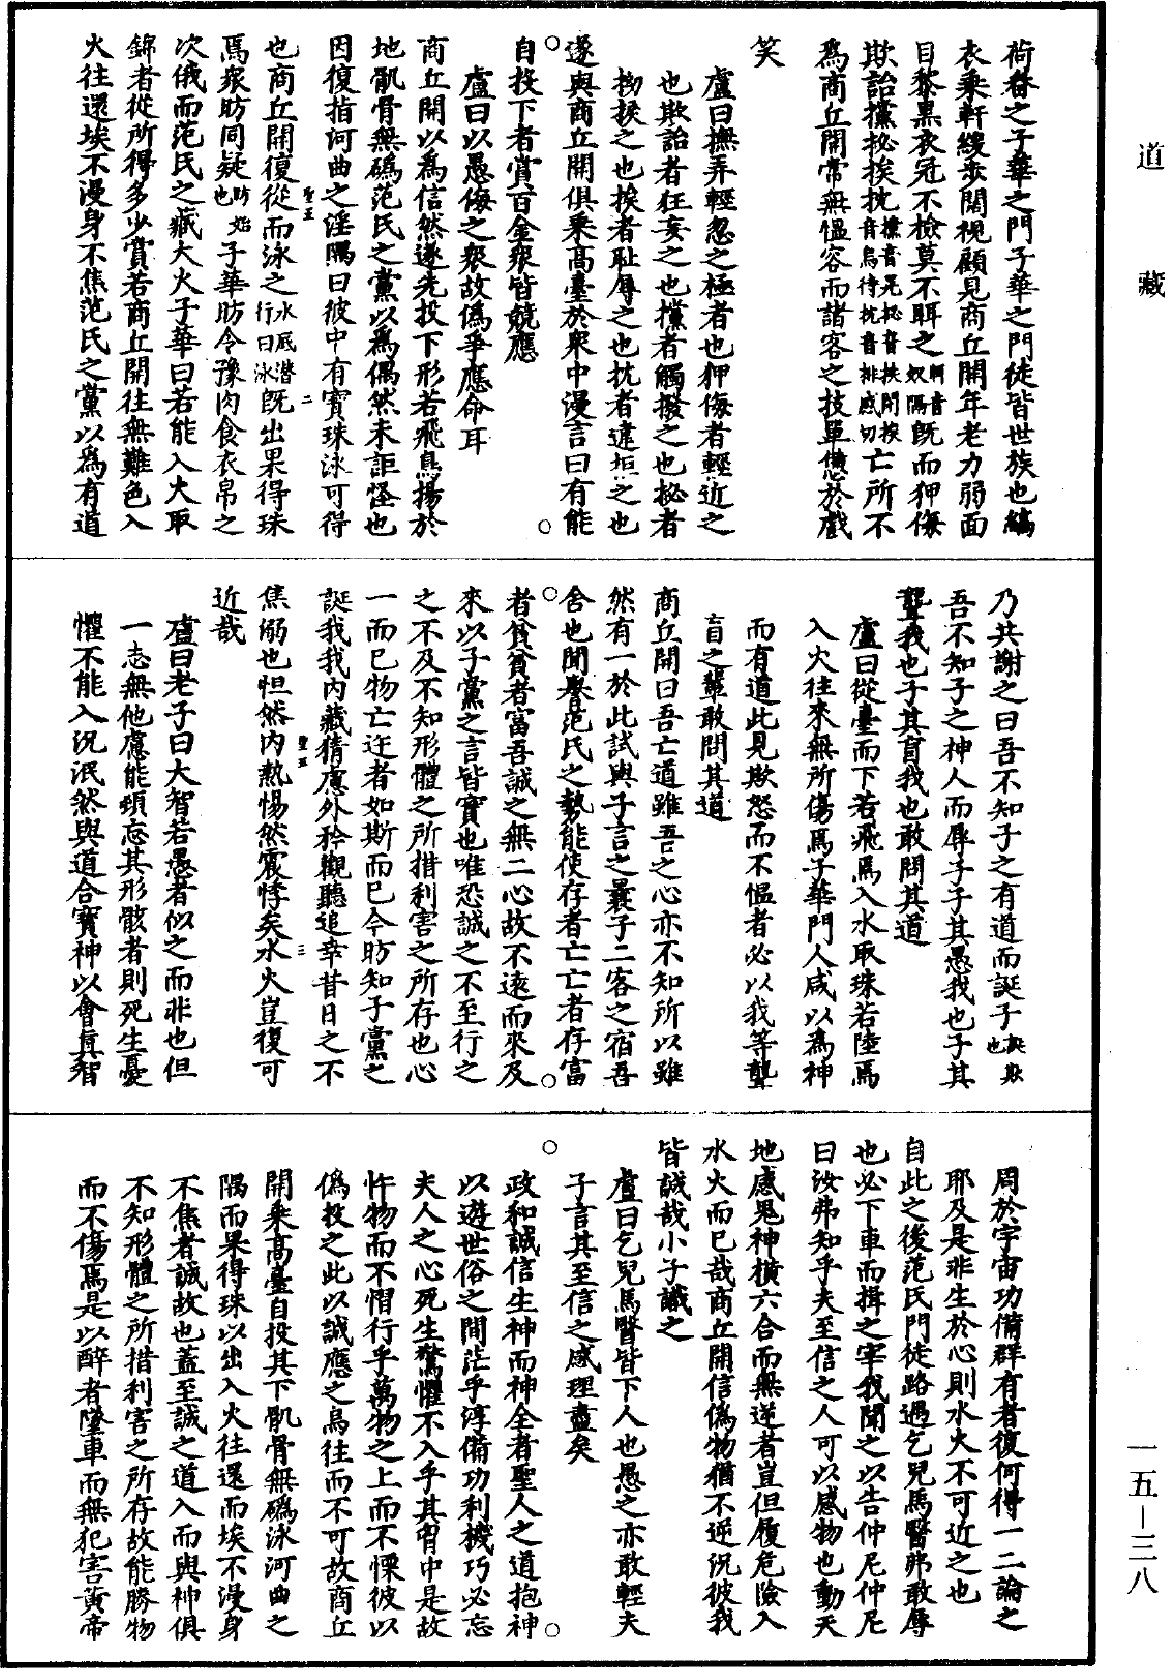 道藏
荷眷之子華之門子華之門徒皆世族也縞
衣乘軒緩步闊視顧見商丘開年老力弱面
目黎黑衣冠不檢莫不眲之眲音奴隔既而狎侮
欺詒攩㧙挨抌攩音晃㧙音扶閉挨音烏待抌音排感切亡所不
爲商丘開常無慍容而諸客之技單憊於戲
笑
盧曰撫弄輕忽之極者也狎侮者輕近之
也欺詒者狂妄之也攩者觸撥之也㧙者
拗捩之也挨者恥辱之也抌者違拒之也
遂與商丘開俱乘高臺於衆中漫言曰有能
自投下者賞百金衆皆競應
盧曰以愚侮之衆故偽爭應命耳
商丘開以爲信然遂先投下形若飛鳥揚於
地骪骨無䃣范氏之黨以爲偶然未詎怪也
因復指河曲之淫隅曰彼中有寶珠泳可得
也商丘開復從而泳之水底潛行曰泳既出果得珠
焉衆昉同疑昉始也子華昉令豫肉食衣帛之
次俄而范氏之藏大火子華曰若能入火取
錦者從所得多少賞若商丘開往無難色入
火往還埃不漫身不焦范氏之黨以爲有道
聖五
二
乃共謝之曰吾不知子之有道而誕子誕欺也
吾不知子之神人而辱子子其愚我也子其
聾我也子其盲我也敢問其道
盧曰從臺而下若飛焉入水取珠若陸焉
入火往來無所傷焉子華門人咸以爲神
而有道此見欺怒而不慍者必以我等聾
盲之輩敢問其道
商丘開曰吾亡道雖吾之心亦不知所以雖
然有一於此試與子言之曩子二客之宿吾
舍也聞譽范氏之勢能使存者亡亡者存富
者貧貧者富吾誠之無二心故不遠而來及
來以子黨之言皆實也唯恐誠之不至行之
之不及不知形體之所措利害之所存也心
一而已物亡迕者如斯而已今昉知子黨之
誕我我內藏猜慮外矜觀聽追幸昔日之不
焦溺也怛然內熱惕然震悸矣水火豈復可
近哉
聖五
三
盧曰老子曰大智若愚者似之而非也但
一志無他慮能頓忘其形骸者則死生憂
懼不能入況泯然與道合寶神以會眞智
周於宇宙功備群有者復何得一二論之
耶及是非生於心則水火不可近之也
自此之後范氏門徒路遇乞兒馬醫弗敢辱
也必下車而揖之宰我聞之以告仲尼仲尼
曰汝弗知乎夫至信之人可以感物也動天
地感鬼神橫六合而無逆者豈但履危險入
水火而已哉商丘開信偽物猶不逆況彼我
皆誠哉小子識之
盧曰乞兒馬醫皆下人也愚之亦敢輕夫
子言其至信之感理盡矣
政和誠信生神而神全者聖人之道抱神
以遊世俗之間茫乎淳備功利機巧必忘
夫人之心死生驚懼不入乎其胷中是故
忤物而不慴行乎萬物之上而不慄彼以
偽投之此以誠應之烏往而不可故商丘
開乘高臺自投其下骪骨無䃣泳河曲之
隅而果得珠以出入火往還而埃不漫身
不焦者誠故也蓋至誠之道入而與神俱
不知形體之所措利害之所存故能勝物
而不傷焉是以醉者墜車而無犯害黃帝
一五—三八